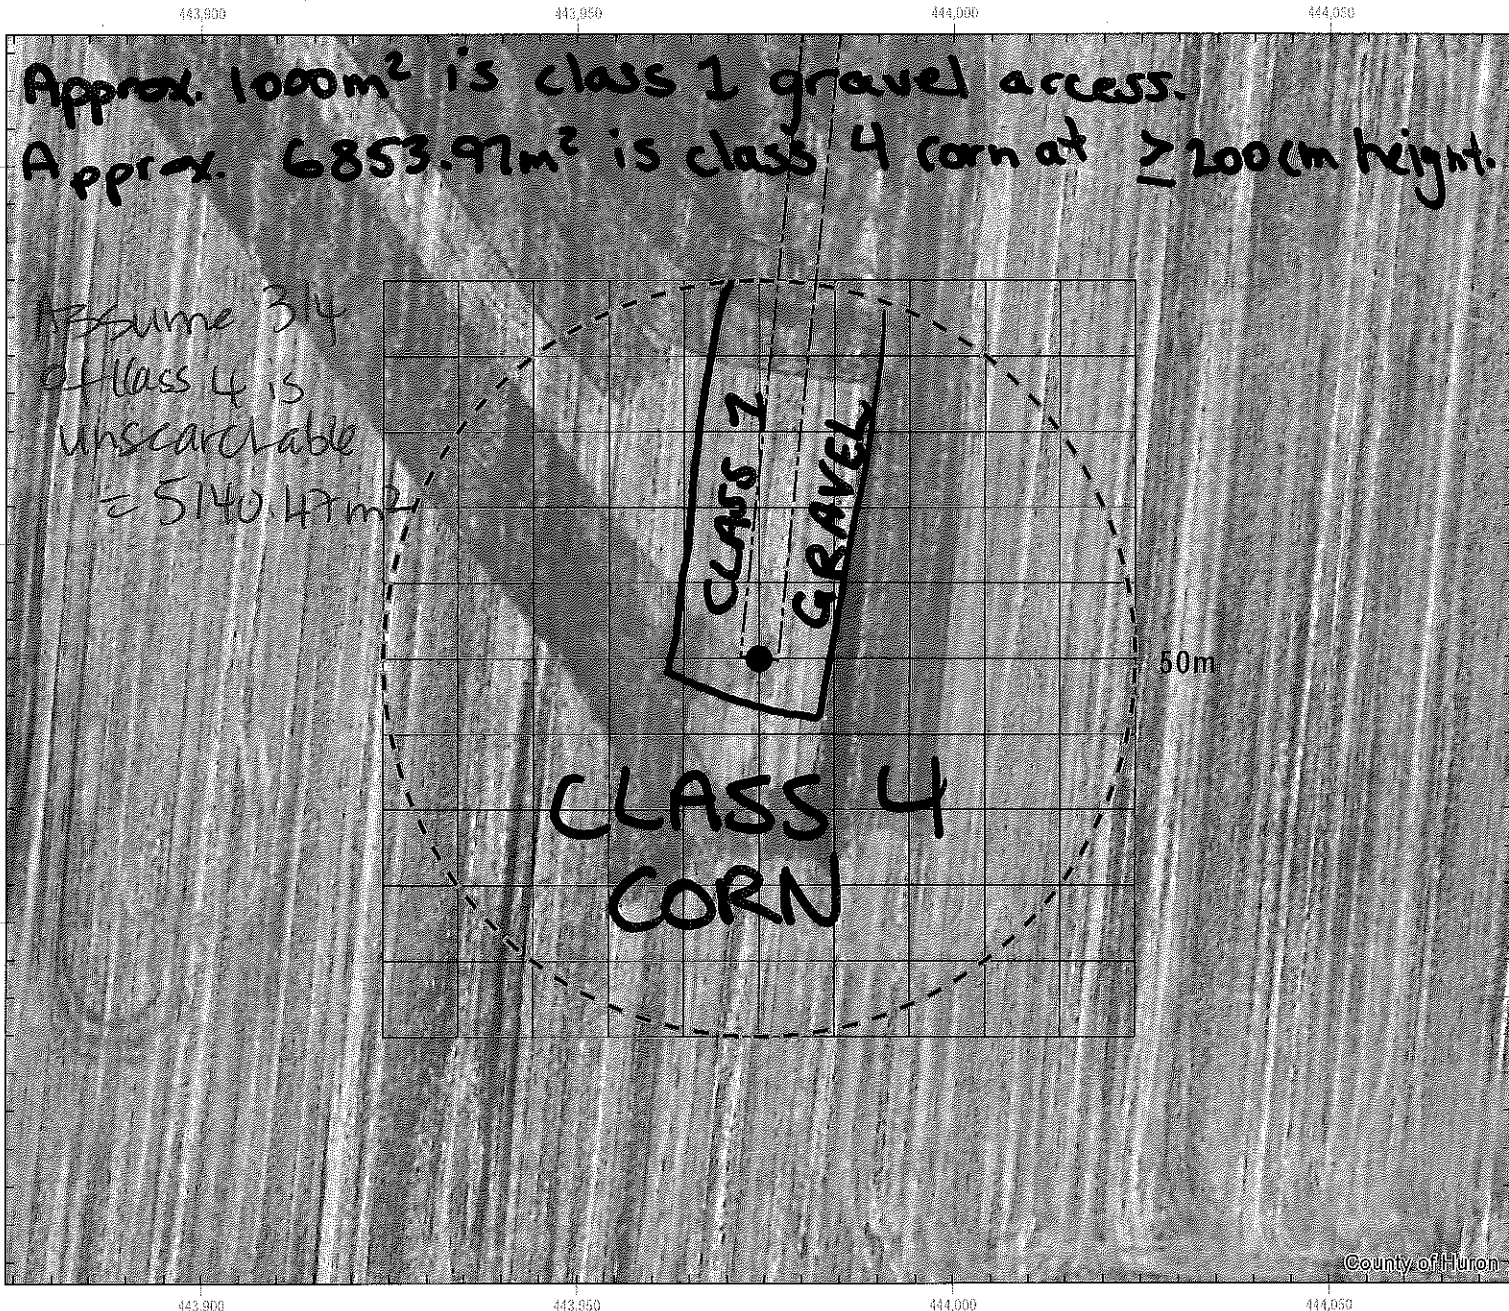 443,900 443,950 444,000 444,050
Approx. 1000m² is class 1 gravel access.
Approx. 6853.97m² is class 4 corn at ≥200cm height.
Assume 3/4
of class 4 is
unsearchable
= 5140.47m²
CLASS 1
GRAVEL
50m
CLASS 4
CORN
County of Huron
443,900 443,950 444,000 444,050